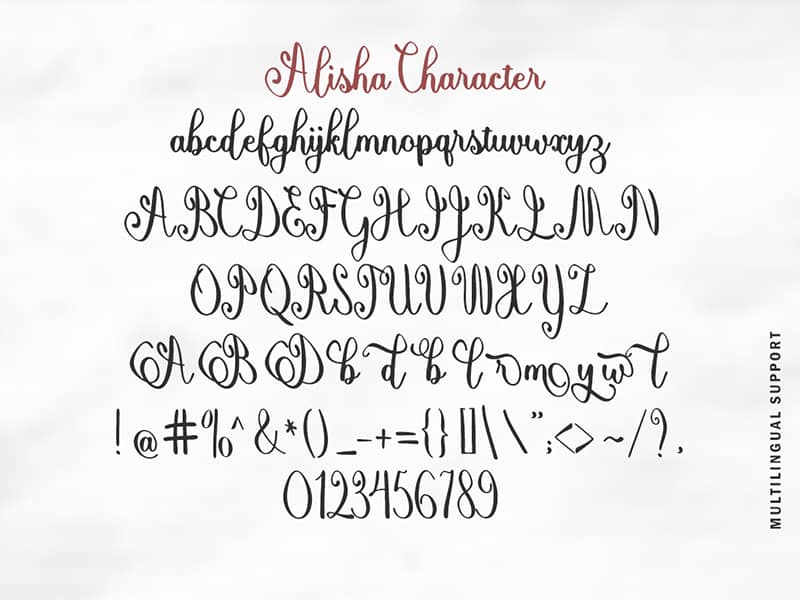 Alisha Character
abcdefghijklmnopqrstuvwxyz
ABCDEFGHIJKLMN
OPQRSTUVWXYZ
A B D b d b l r m o y w t
!@#%^&*()_-+={}[]|\";<>~/?,
0123456789
MULTILINGUAL SUPPORT